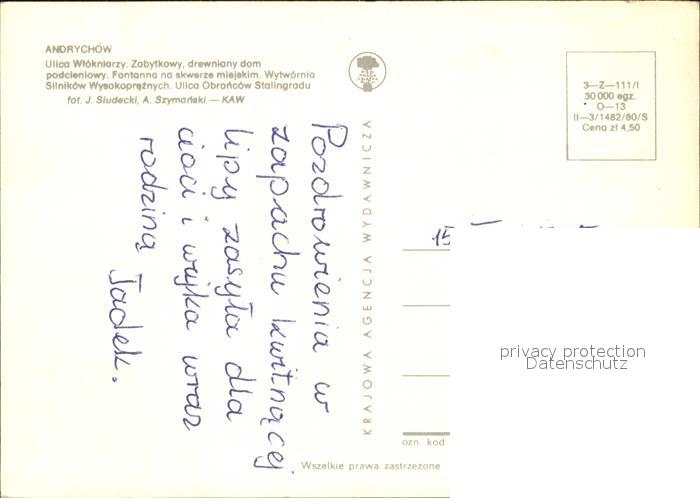 ANDRYCHÓW
Ulica Włókniarzy. Zabytkowy, drewniany dom
podcieniowy. Fontanna na skwerze miejskim. Wytwórnia
Silników Wysokoprężnych. Ulica Obrońców Stalingradu
fot. J. Siudecki, A. Szymański — KAW
3—Z—111/I
30 000 egz.
O—13
II—3/1482/80/S
Cena zł 4,50
Pozdrowienia w
zapachu kwitnącej
lipy zasyła dla
cioci i wujka wraz
rodziną
Tadek.
KRAJOWA AGENCJA WYDAWNICZA
15
privacy protection
Datenschutz
ozn. kod
Wszelkie prawa zastrzeżone